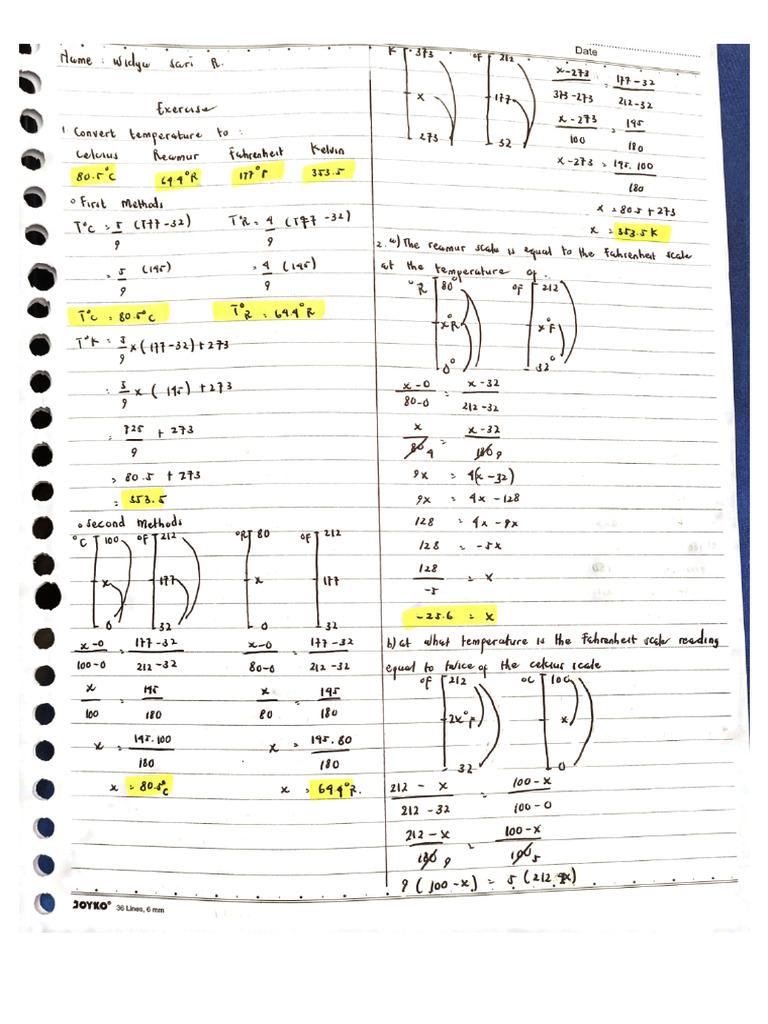 Name : Widya Sari R.
Exercise
1. Convert temperature to :
Celcius Reamur Fahrenheit Kelvin
80.5°C 64.4°R 177°F 353.5
° First Methods
T°C = 5/9 (177-32) T°R = 4/9 (177-32)
= 5/9 (145) = 4/9 (145)
T°C = 80.5°C T°R = 64.4°R
T°K = 5/9 x (177-32) + 273
= 5/9 x (145) + 273
= 725/9 + 273
= 80.5 + 273
= 353.5
° Second Methods
°C 100 °F 212 °R 80 °F 212
x 177 x 177
0 32 0 32
x-0/100-0 = 177-32/212-32 x-0/80-0 = 177-32/212-32
x/100 = 145/180 x/80 = 145/180
x = 145.100/180 x = 145.80/180
x = 80.5°C x = 64.4°R.
JOYKO® 36 Lines, 6 mm
Date
K 373 °F 212
x 177
273 32
x-273/373-273 = 177-32/212-32
x-273/100 = 145/180
x-273 = 145.100/180
x = 80.5 + 273
x = 353.5 K
2. a) The reamur scale is equal to the Fahrenheit scale
at the temperature of.
°R 80° °F 212
x°R x°F
0° 32°
x-0/80-0 = x-32/212-32
x/80 4 = x-32/180 9
9x = 4(x-32)
9x = 4x - 128
128 = 4x - 9x
128 = -5x
128/-5 = x
-25.6 = x
b) at what temperature is the Fahrenheit scale reading
equal to twice of the celcius scale
°F 212 °C 100
2x°F x
32 0
212 - x/212 - 32 = 100-x/100-0
212-x/180 9 = 100-x/100 5
9 (100-x) = 5 (212